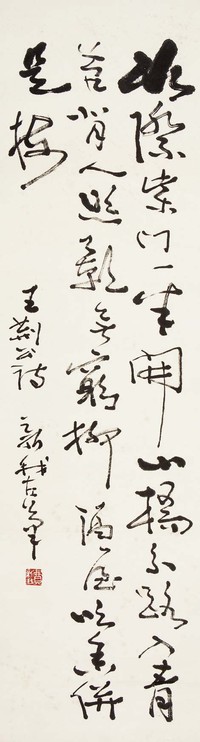 水際柴門一半開小橋分路入青
苔背人照影無窮柳隔屋吹香併
是梅
王荊公詩 新我左筆